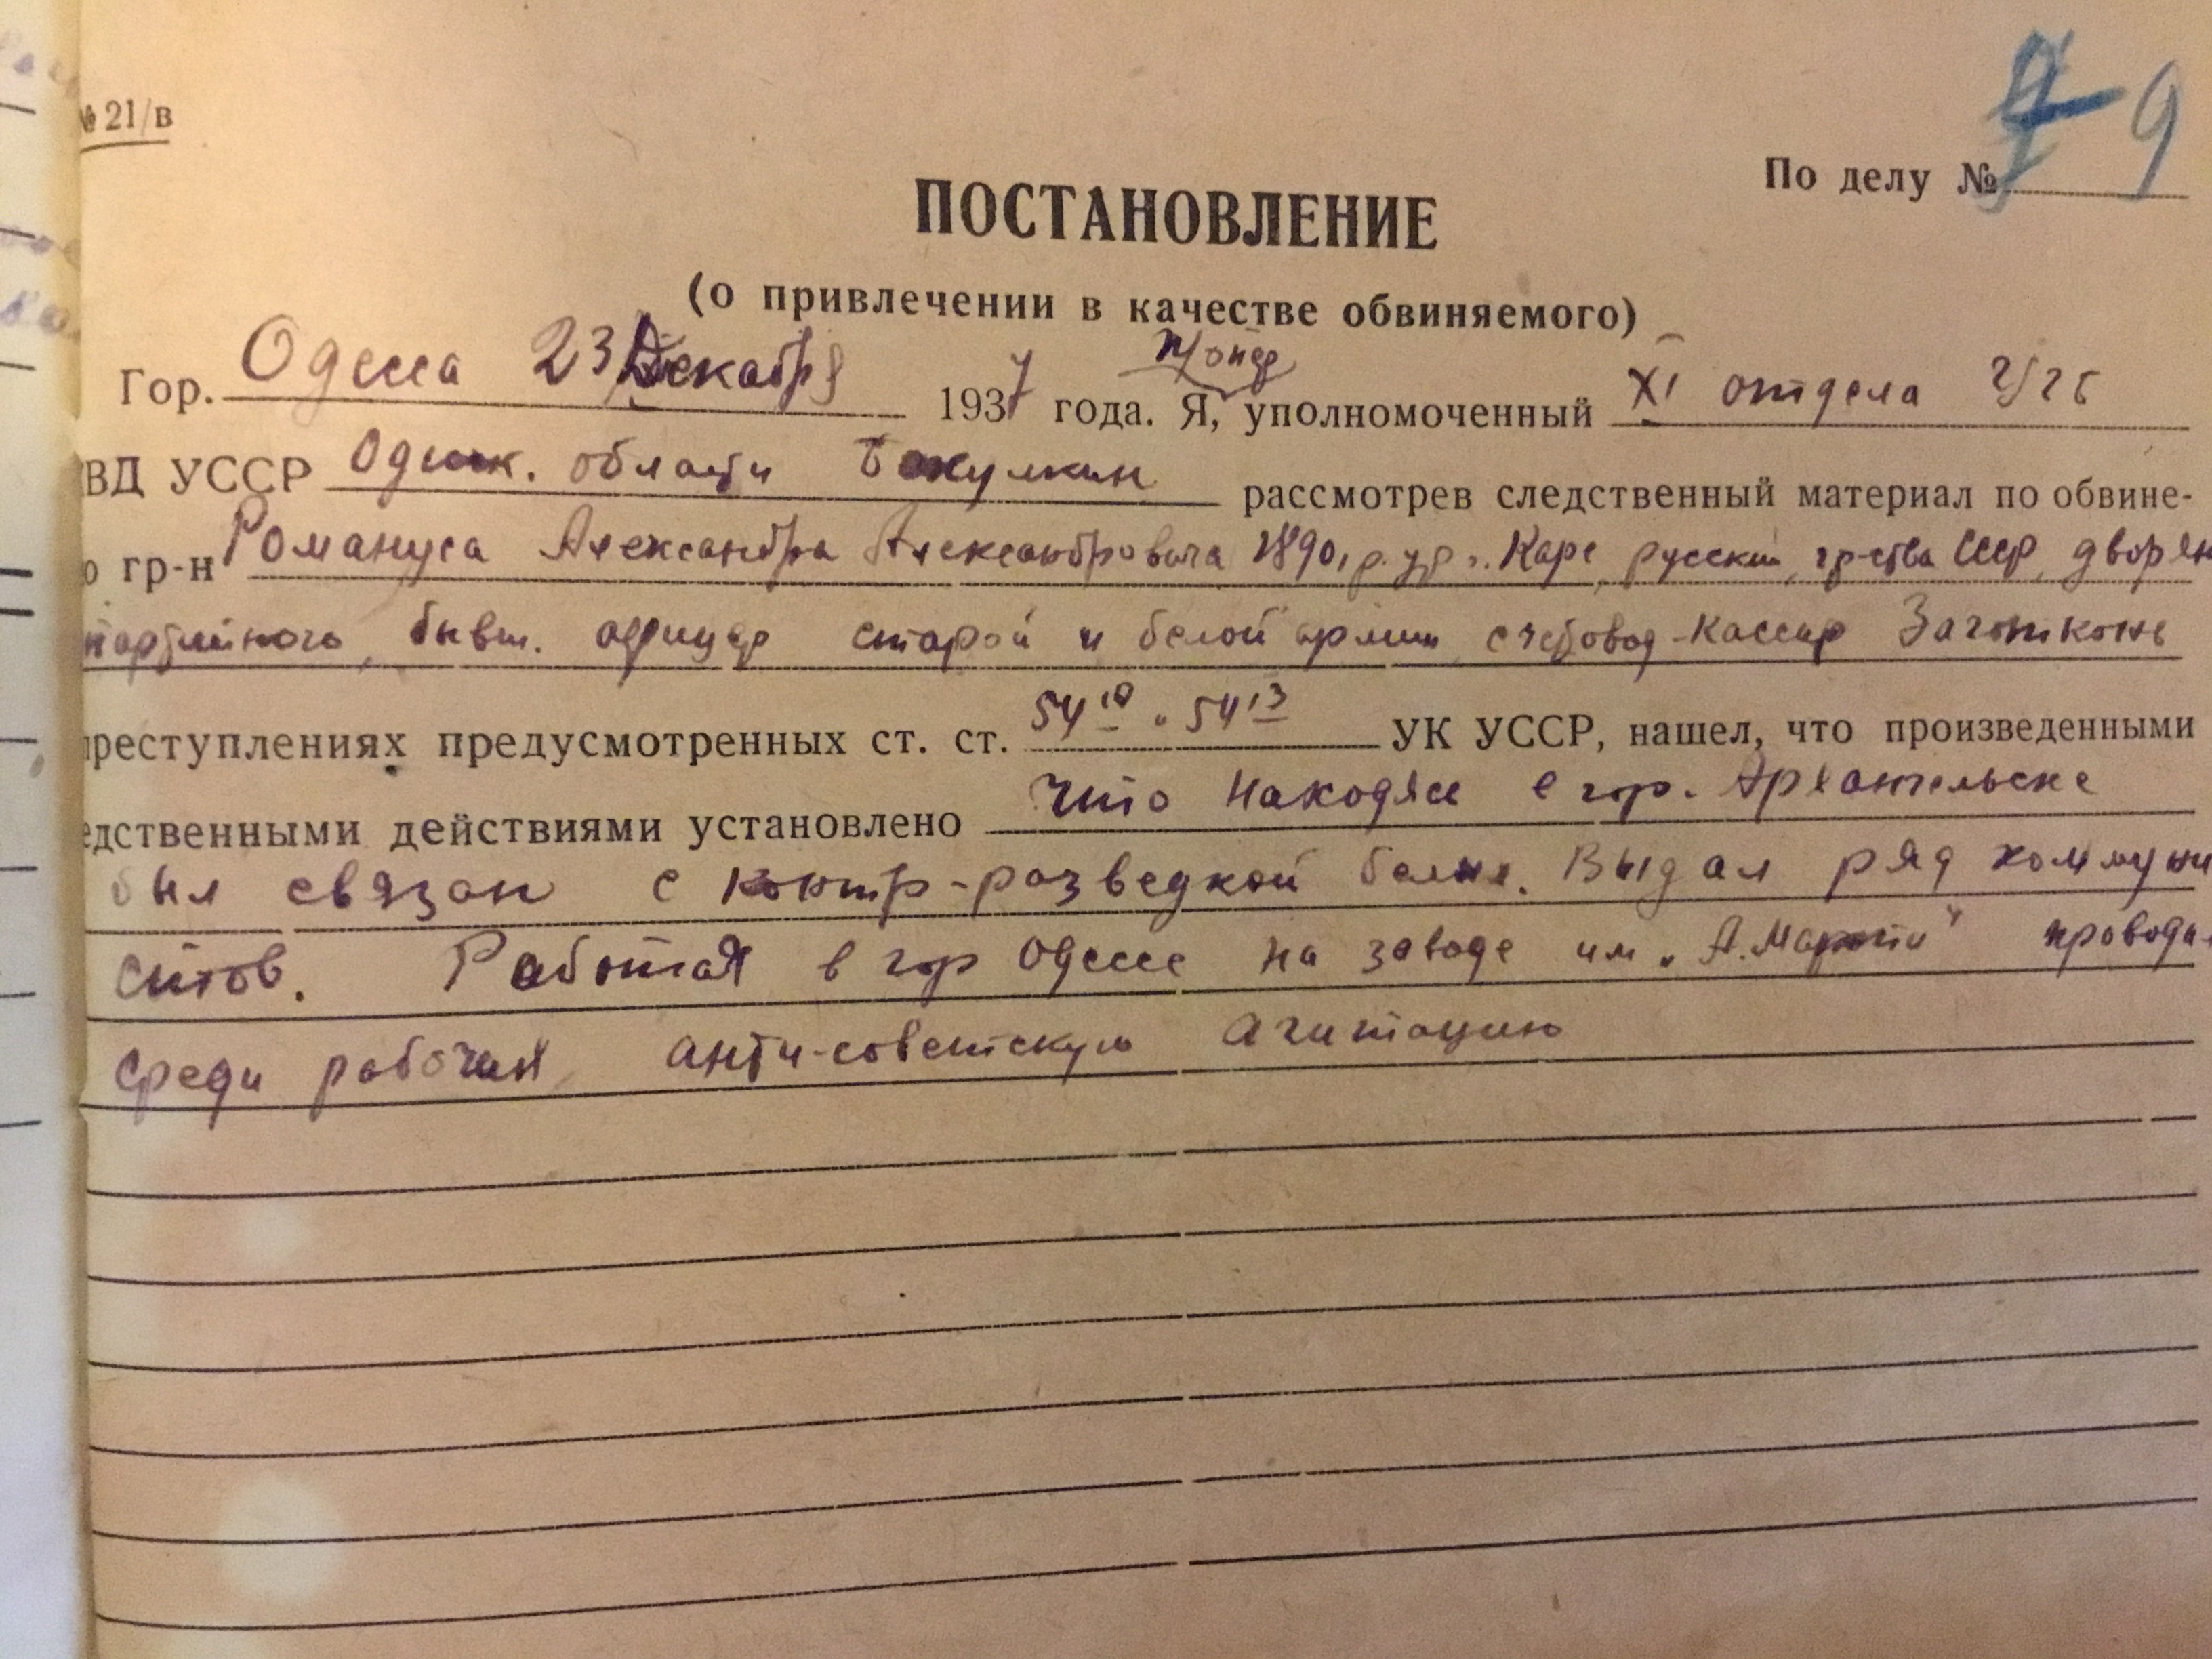 № 21/в
9
По делу №
ПОСТАНОВЛЕНИЕ
(о привлечении в качестве обвиняемого)
Гор. Одесса 23 Декабря 1937 года. Я, уполномоченный XI отдела УГБ
ВД УССР Одесск. области рассмотрев следственный материал по обвине-
ю гр-н Романуса Александра Александровича 1890 р. ур. г. Карс, русский, гр-ства СССР, дворян
партийного, бывш. офицер старой и белой армии счетовод-кассир Заготконь
преступлениях предусмотренных ст. ст. 54 10 и 54 13 УК УССР, нашел, что произведенными
едственными действиями установлено что находясь в гор. Архангельске
был связан с контр-разведкой белых. Выдал ряд коммуни
стов. Работая в гор Одессе на заводе им „А. Марти" проводил
среди рабочих анти-советскую агитацию